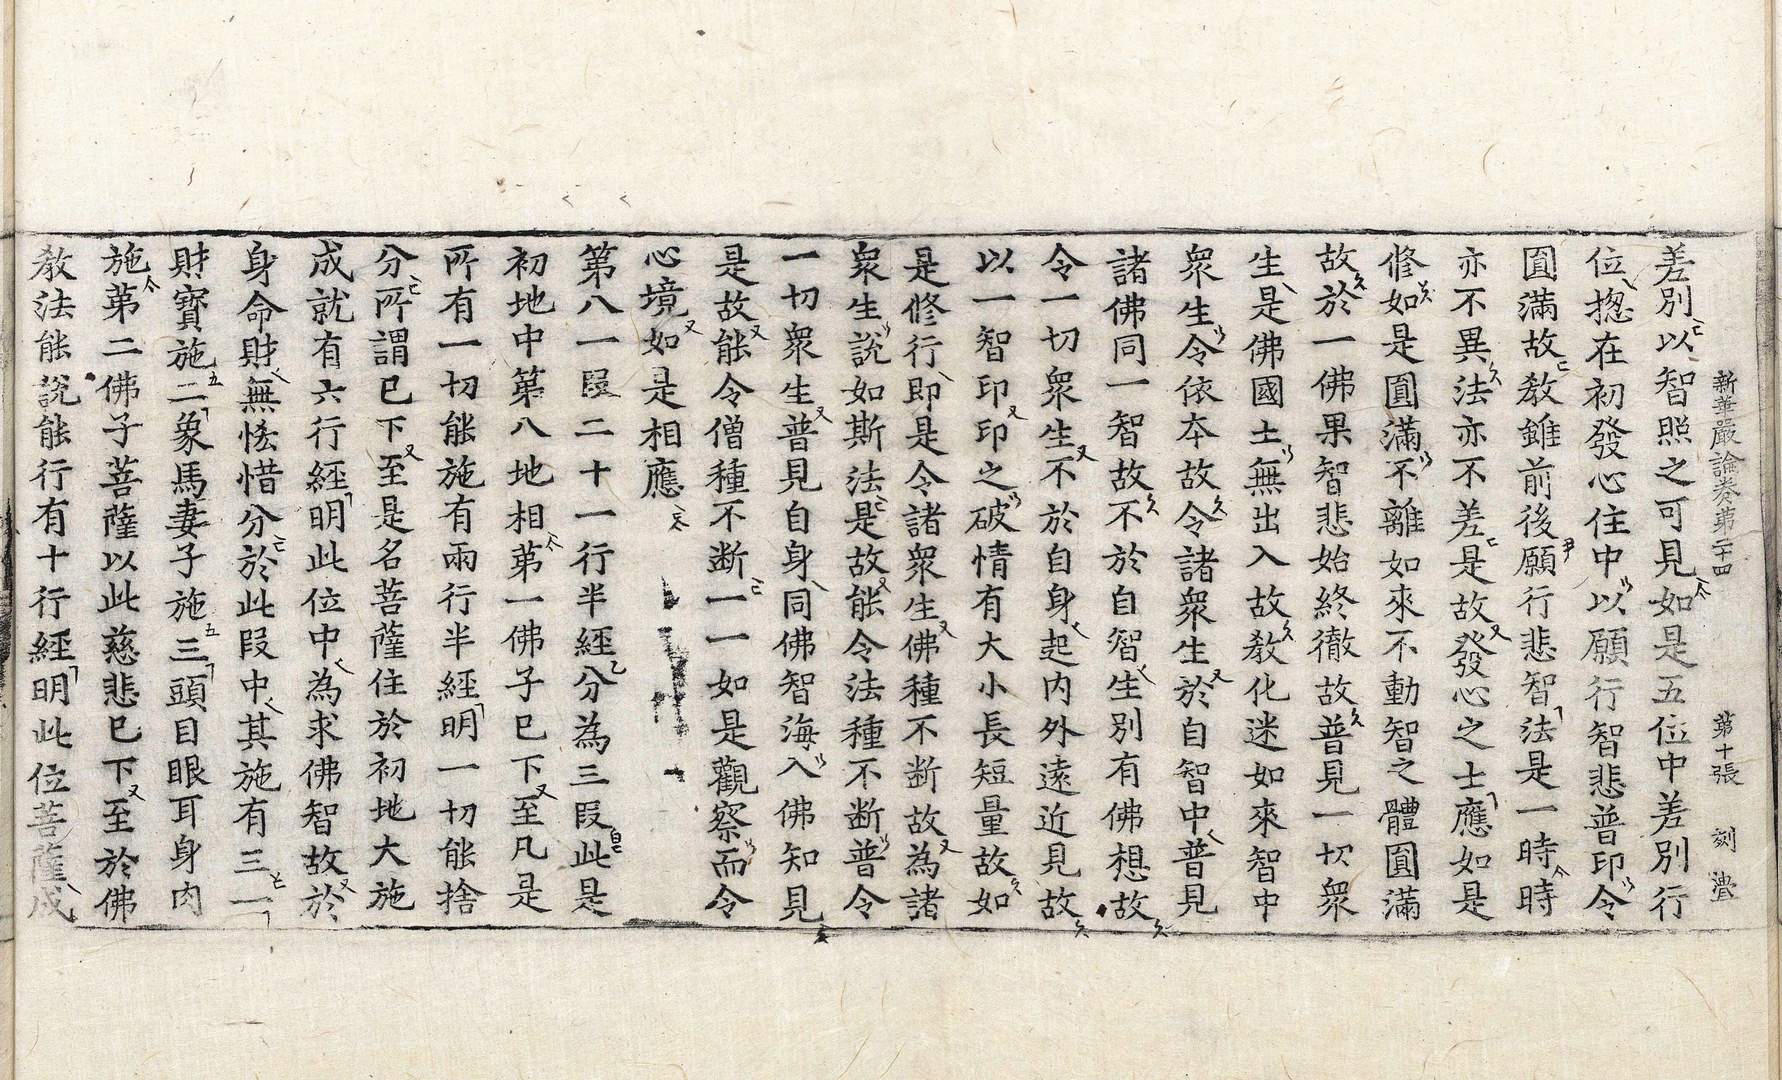 新華嚴論卷第二十四 第十張 刻
差別以智照之可見如是五位中差別行
位揔在初發心住中以願行智悲普印令
圎滿故教雖前後願行悲智法是一時時
亦不異法亦不差是故發心之士應如是
修如是圎滿不離如來不動智之體圎滿
故於一佛果智悲始終徹故普見一切衆
生是佛國土無出入故教化迷如來智中
衆生令依本故令諸衆生於自智中普見
諸佛同一智故不於自智生別有佛想故
令一切衆生不於自身起內外遠近見故
以一智印印之破情有大小長短量故如
是修行即是令諸衆生佛種不断故為諸
衆生說如斯法是故能令法種不断普令
一切衆生普見自身同佛智海入佛知見
是故能令僧種不断一一如是觀察而令
心境如是相應
第八一段二十一行半經分為三段此是
初地中第八地相第一佛子已下至凡是
所有一切能施有兩行半經明一切能捨
分所謂已下至是名菩薩住於初地大施
成就有六行經明此位中為求佛智故於
身命財無悋惜分於此段中其施有三一
財寳施二象馬妻子施三頭目眼耳身肉
施第二佛子菩薩以此慈悲已下至於佛
教法能說能行有十行經明此位菩薩成